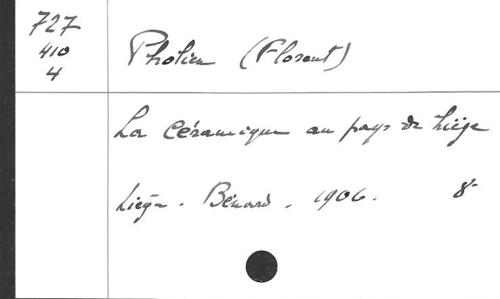 727
410
4
Pholien (Florent)
La Céramique au pays de Liége
Liége. Bénard. 1906. 8°